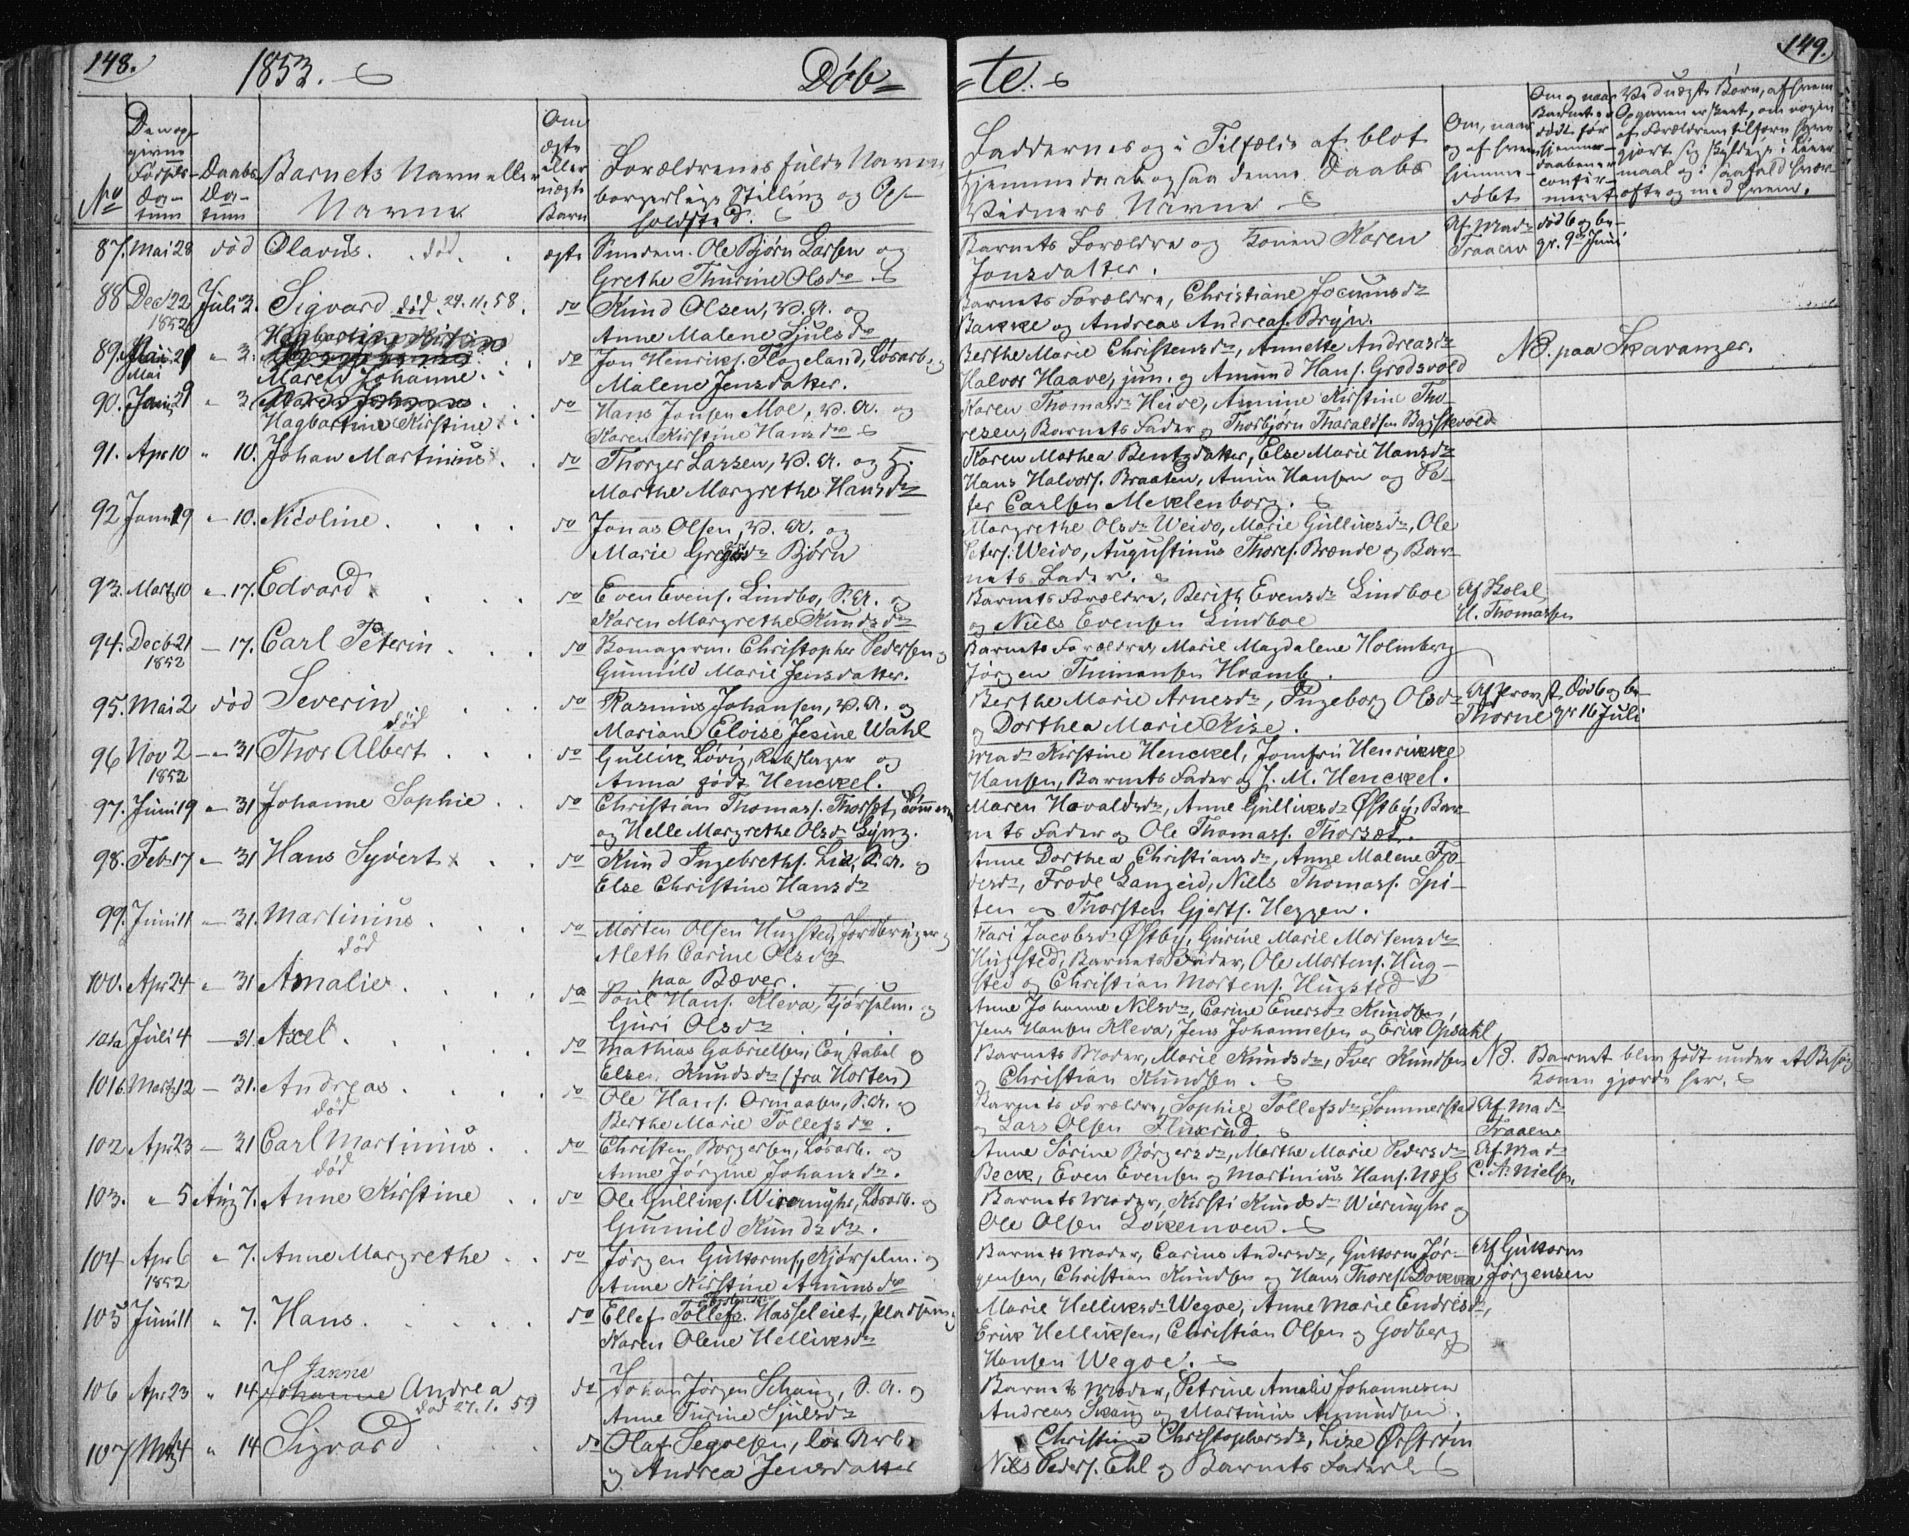 148.
1853.
Døb-
-te.
149.
No
Den op-
givne
Fødsels-
Da-
tum
Daabs
Da-
tum
Barnets Navn eller
Navne
Om
ægte
eller
uægte
Barn
Forældrenes fulde Navne
borgerlige Stilling og Op-
holdsted.
Faddernes og i Tilfælde af blot
Hjemmedaab ogsaa denne Daabs
Vidners Navne
Om, naar
og af hvem
hjemme-
døbt
Om og naar
Barnet er
dødt før
Hjemme-
daaben er
confir-
meret
Ved uægte Børn, af hvem
Opgaven er skeet, om nogen
af Forældrene tilforn have
gjort sig skyldige i Leier
maal og i saafald hvor
ofte og med hvem.
87. Mai 28 død Olavus. død. ægte Sømdm. Ole Bjørn Larsen og
Grethe Thurine Olsdr
Barnets Forældre og Konen Karen
Jonsdatter.
Af Mad.
Traaen
død og be-
gr. 9de Juni
88 Dec 22 Juli 3. Sigvard død. 24.11.58. do Knud Olsen, S. A. og
1852
Anne Malene Sjulsdr
Barnets Forældre, Christiane Jocumsdr
Bakke og Andreas Andreas. Bryn.
89. Mai 21 " 3. Maren Johanne. do Jon Henriks. Flageland, Løsarb. og
Malene Jensdatter.
Berthe Marie Christensdr, Annette Andreasdr
Halvor Haave, jun. og Amund Hans. Grosvold
NB. paa Skavanger.
90. Juni 9 " 3 Hagbartine Kirstine do Hans Jonsen Moe, S. A. og
Karen Kirstine Hansdr
Karen Thomasdr Heide, Annine Kirstine Tho-
resen, Barnets Fader og Thorbjørn Tharaldsen Bagstevold
91. Apr 10 " 10. Johan Martinius. do Thorger Larsen, S. A. og H.
Marthe Margrethe Hansdr
Karen Mathea Bentzdatter, Else Marie Hansdr
Hans Halvors. Braaten, Amin Hansen og Pe-
ter Carlsen Meklenborg.
92 Juni 19 " 10. Nicoline. do Jonas Olsen, S. A. og
Marie Gregersdr Bjørn
Margrethe Olsdr Weido, Marie Gulliksdr, Ole
Peters. Weido, Augustinus Thores. Brænde og Bar-
nets Fader.
93. Mart 10 " 17. Edvard do Even Evens. Lindbo, S. A. og
Karen Margrethe Knudsdr
Barnets Forældre, Berith Evensdr Lindboe
og Niels Evensen Lindboe
Af Bolel
H. Thomassen
94. Decb 21 — 17. Carl Peterin do Bomagerm. Christopher Pedersen og
1852
Gunnild Marie Jensdatter.
Barnets Forældre, Marie Magdalene Holmberg
Jørgen Thimansen Kramb.
95. Mai 2 død Severin do Rasmus Johansen, S. A. og
død
Mariane Eloise Jesine Wahl
Berthe Marie Arnesdr, Ingeborg Olsdr
og Dorthea Marie Kise.
Af Provst
Thorne
Død og be-
gr 16 Juli
96 Nov 2 — 31 Thor Albert do Gullik Løvig, Rebslager og
1852
Anna født Henckel.
Mad. Kirstine Henckel, Jomfru Henrikke
Hansen, Barnets Fader og J. M. Henckel.
97. Juni 19 " 31 Johanne Sophie do Christian Thomas. Thorsøt, Tømmerm.
og Helle Margrethe Olsdr Lyng.
Maren Havaldsdr, Anne Gulliksdr Østby, Bar-
nets Fader og Ole Thomass. Thorsæt.
98. Feb 17 " 31 Hans Syvert do Knud Ingebreths. Lie, S. A. og
Else Christine Hansdr
Anne Dorthea Christiansdr, Anne Malene Fro-
desdr, Frode Langeid, Niels Thomass. Spi-
ten og Thorsten Gjerts. Heggen.
99. Juni 11 " 31. Martinius do Morten Olsen Hugsted, Jordbruger og
død
Aleth Carine Olsdr
paa Bæver.
Kari Jacobsdr Østby, Gurine Marie Mortensdr
Hugsted, Barnets Fader, Ole Mortens. Hug-
sted og Christian Mortens. Hugsted
100. Apr 24 " 31 Amalie do Poul Hans. Kleva, Kjørselm. og
Guri Olsdr
Anne Johanne Nilsdr, Carine Enersdr Knudsen,
Jens Hansen Kleva, Jens Johannesen og Erik Opsahl
101a Juli 4 — 31. Axel. do Mathias Gabrielsen, Constabel og
Else Knudsdr (fra Horten)
Barnets Moder, Marie Knudsdr, Iver Knudsen
og Christian Knudsen.
NB. Barnet blev født under et Besøg
Konen gjorde her.
101b. Mart 12 — 31. Andreas do Ole Hans. Ormaasen, S. A. og
død
Berthe Marie Tollefsdr.
Barnets Forældre, Sophie Tollefsdr Sommerstad
og Lars Olsen Flukrud.
Af Mad
Traaen
102 Apr 23 — 31 Carl Martinius. do Christen Borgersen, Løsarb. og
død
Anne Jørgine Johansdr.
Anne Sørine Børgersdr, Marthe Marie Pedersdr
Beck, Even Evensen og Martinius Hans. Næss
Af Mad
C. A. Nielsen.
103. " 5 Aug 7. Anne Kirstine do Ole Gulliks. Wirunghr, Løsarb. og
Gunnild Knudsdr.
Barnets Moder, Kirsti Knudsdr Wirunghr og
Ole Olsen Løkemoen.
104 Apr 6 " 7. Anne Margrethe do Jørgen Guttorms, Kjørselm. og
1852
Anne Kirstine Amunsdr
Barnets Moder, Carine Andersdr, Guttorm Jør-
gensen, Christian Knudsen og Hans Thores. Dokken
Af Guttorm
Jørgensen
105 Juni 11 " 7. Hans. do Ellef Tollefs. Hasseleiet, Pladsm. og
Karen Olene Helliksdr
Marie Helliksdr Wegoe, Anne Marie Endresdr,
Erik Helliksen, Christian Olsen og Godberg
Hansen Wegoe.
106 Apr 23 " 14. Johanne Janne Andrea do Johan Jørgen Schaug, S. A. og
død 27.1.59
Anne Turine Sjulsdr
Barnets Moder, Petrine Amalie Johannesen
Andreas Skaug og Martinius Amundsen.
107 Mai 4 " 14 Sigvard do Olaf Segolsen, løs Arb.
og Andrea Jensdatter
Christine Christophersdr, Lise Ørstrøm
Nils Peders. Ehl og Barnets Fader